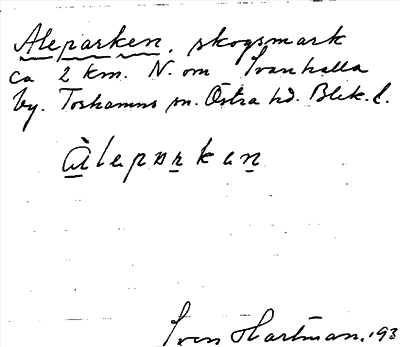 Aleparken, skogsmark
ca 2 km. N. om Ivanhalla
by. Torhamns sn. Östra hd. Blek. l.
àlepark an
Iven Hartman. 193